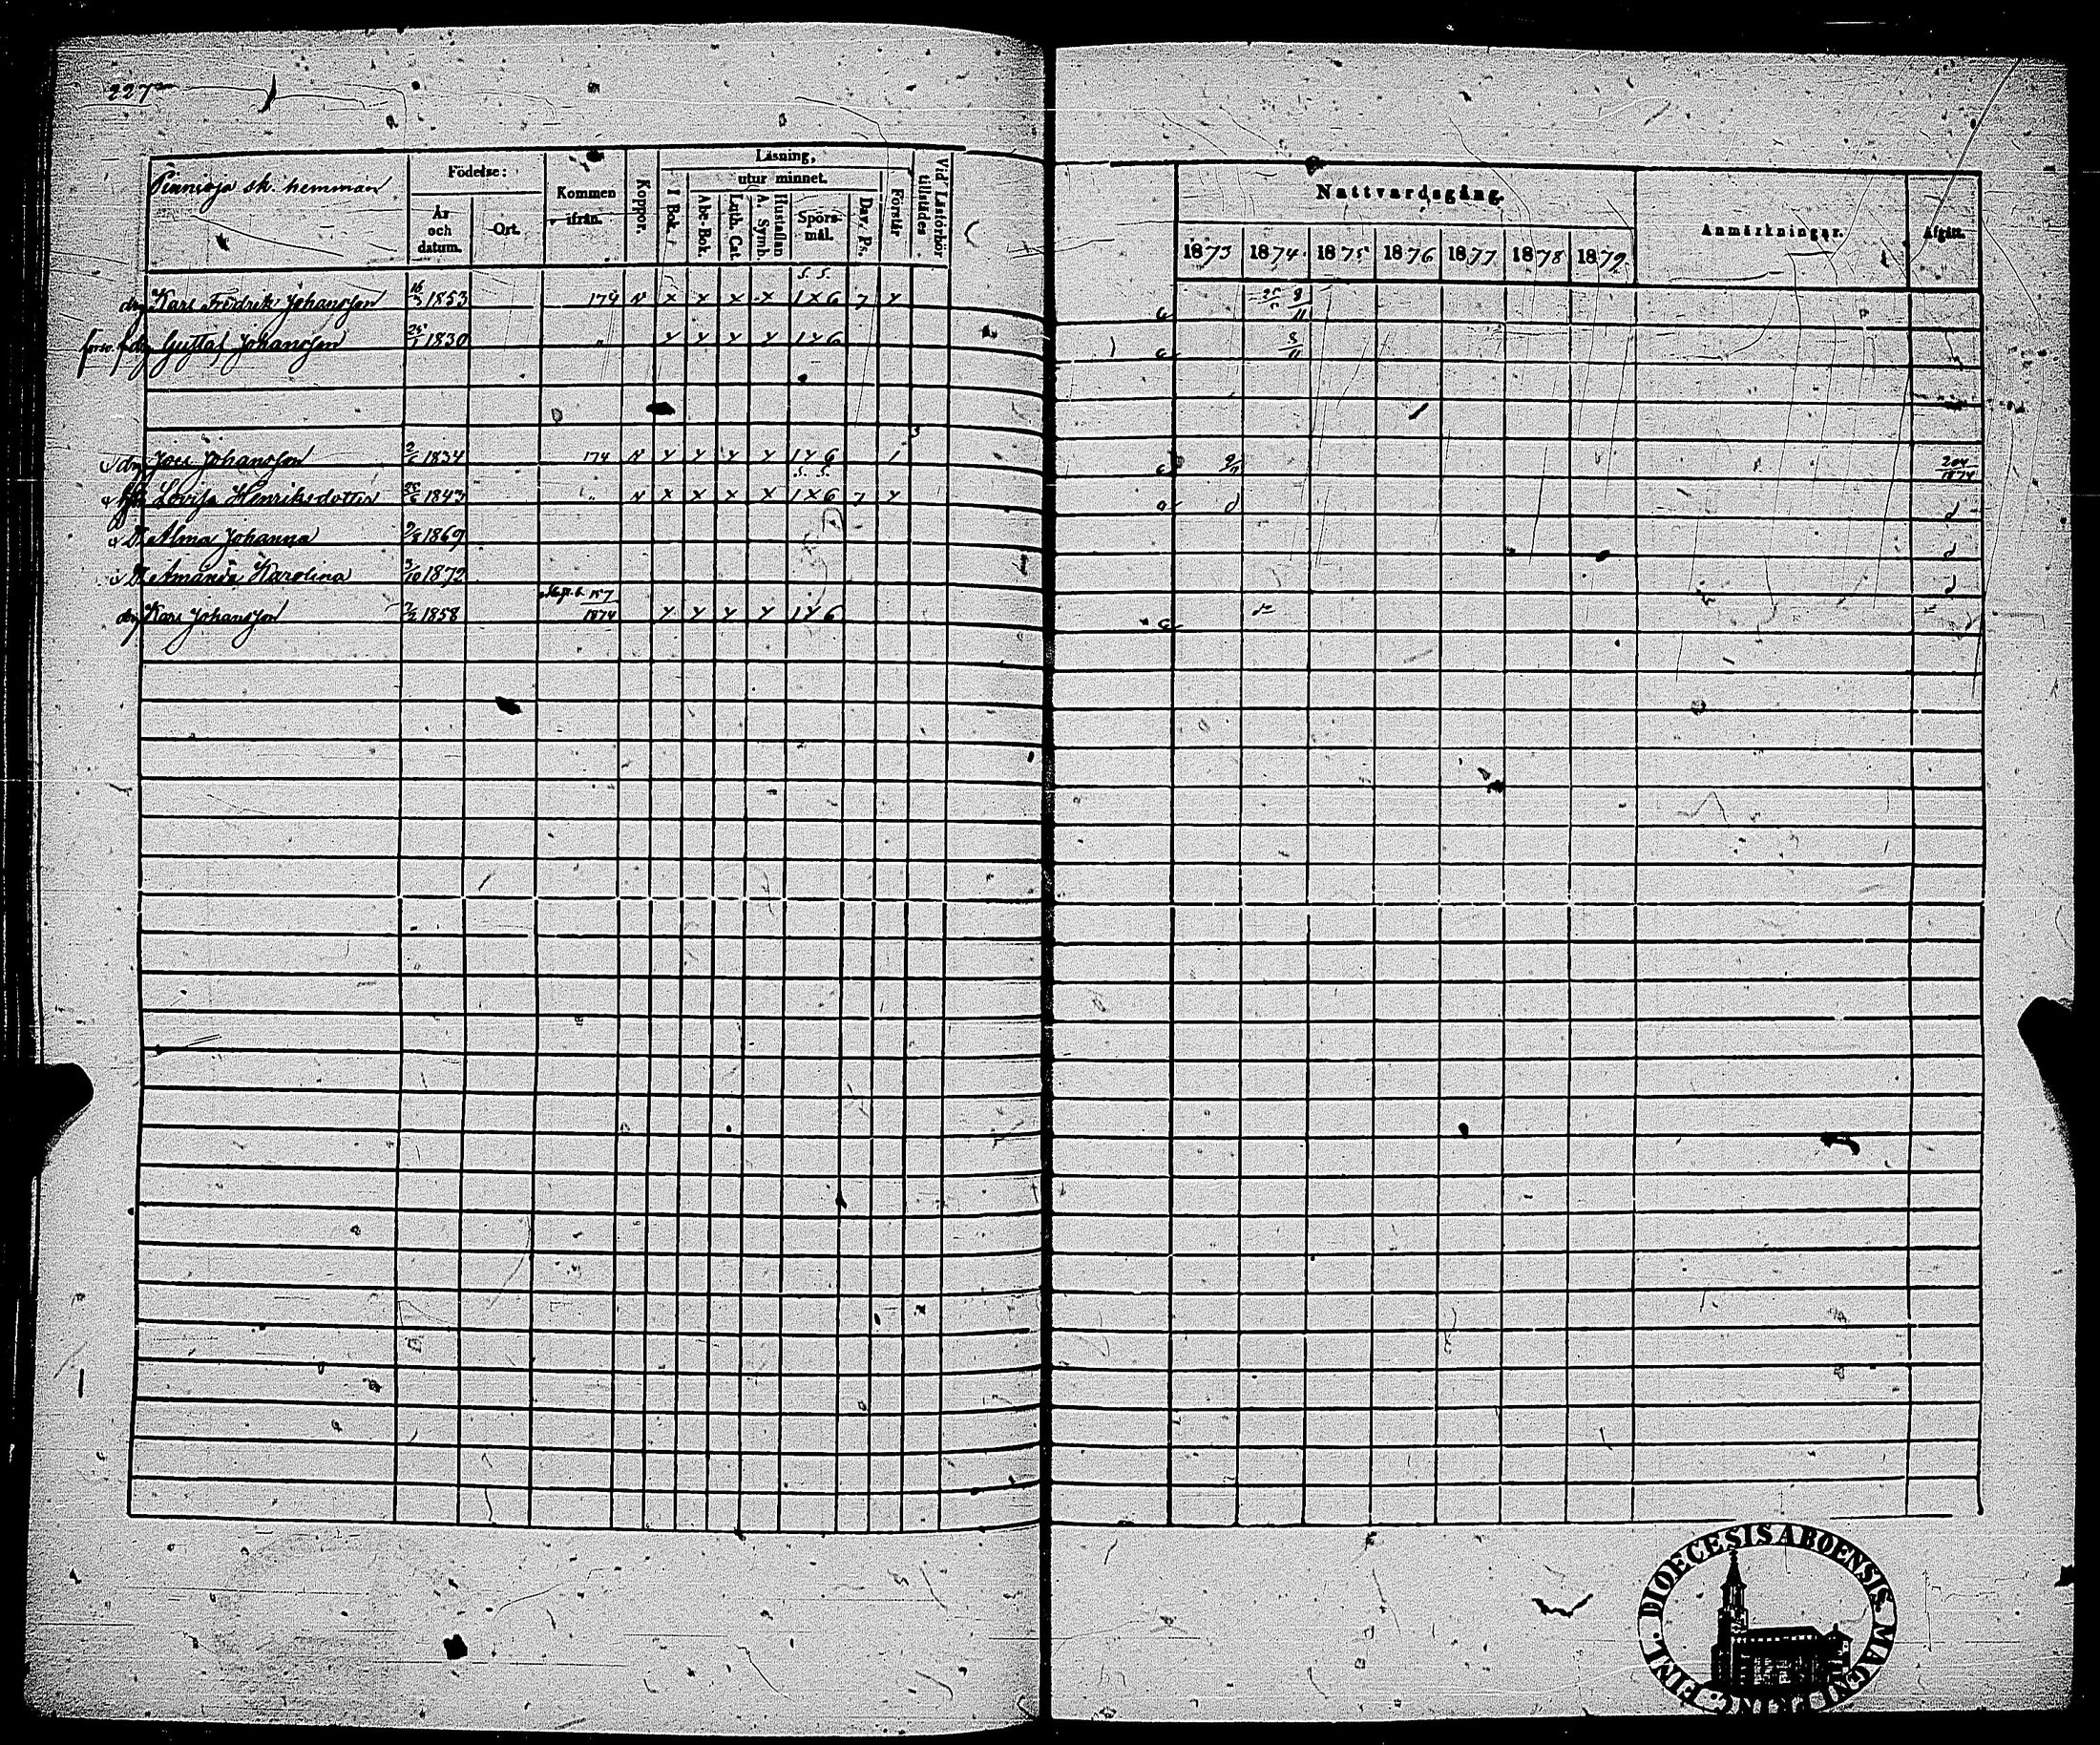 227
sk. hemman
Födelse:
År och datum.
Ort.
Kommen ifrån.
Koppor.
Läsning,
I Bok.
utur minnet.
Abc. Bok.
Luth. Cat.
Hustaflan A. Symb.
Spörsmål.
Dav. Ps.
Förstår
Vid Läsförhör tillstädes.
Nattvardsgång.
1873 1874. 1875 1876 1877 1878 1879
Anmärkningar.
Afgått.
s. s.
drg Karl Fredrik Johansson 16/3 1853 174 N x x x x 1 x 6 7 x 8/11
drg Gustaf Johansson 25/1 1830 " x x x x 1 x 6 8/11
drg Joel Johansson 2/6 1834 174 N x x x x 1 x 6 1 204/1874
s. s.
Lovisa Henriksdotter 1843 " N x x x x 1 x 6 7 x d d
D. Alma Johanna 2/8 1869 d
D. Amanda Karolina 3/10 1872 d
drg Karl Johansson 7/2 1858 157/1874 x x x x 1 x 6
DIOECESIS ABOENSIS. MAGNI PRINC. FINL.